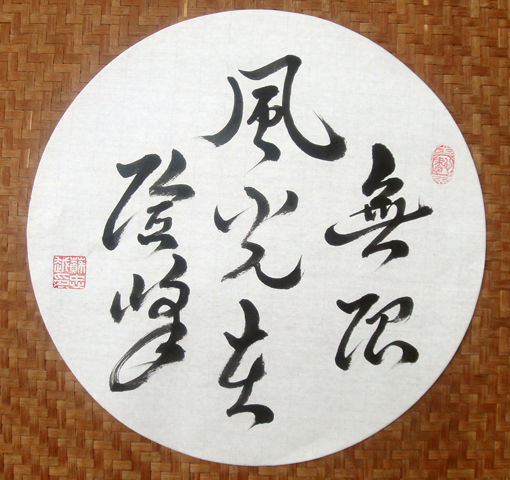 無限
風光在
險峰